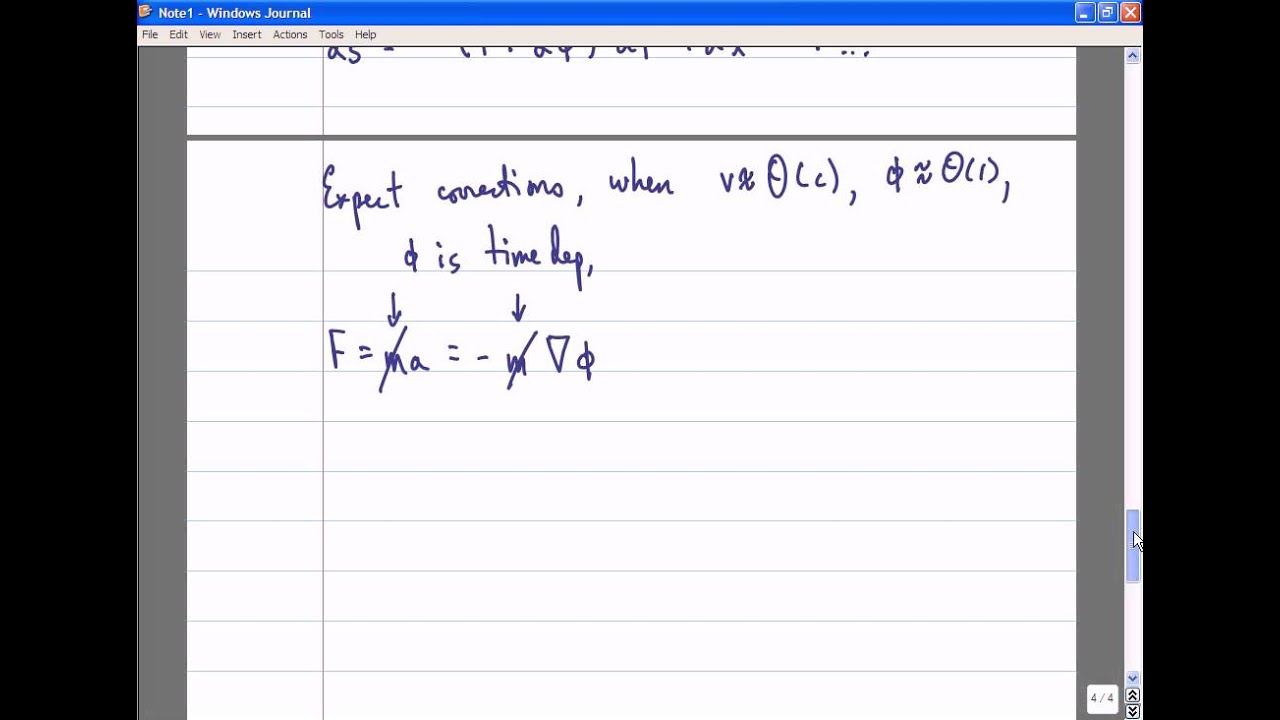 Note1 - Windows Journal
File Edit View Insert Actions Tools Help
Expect corrections, when v≈ O(c), ϕ ≈ O(1),
ϕ is time dep,
↓ ↓
F = ma = - m ∇ϕ
4 / 4